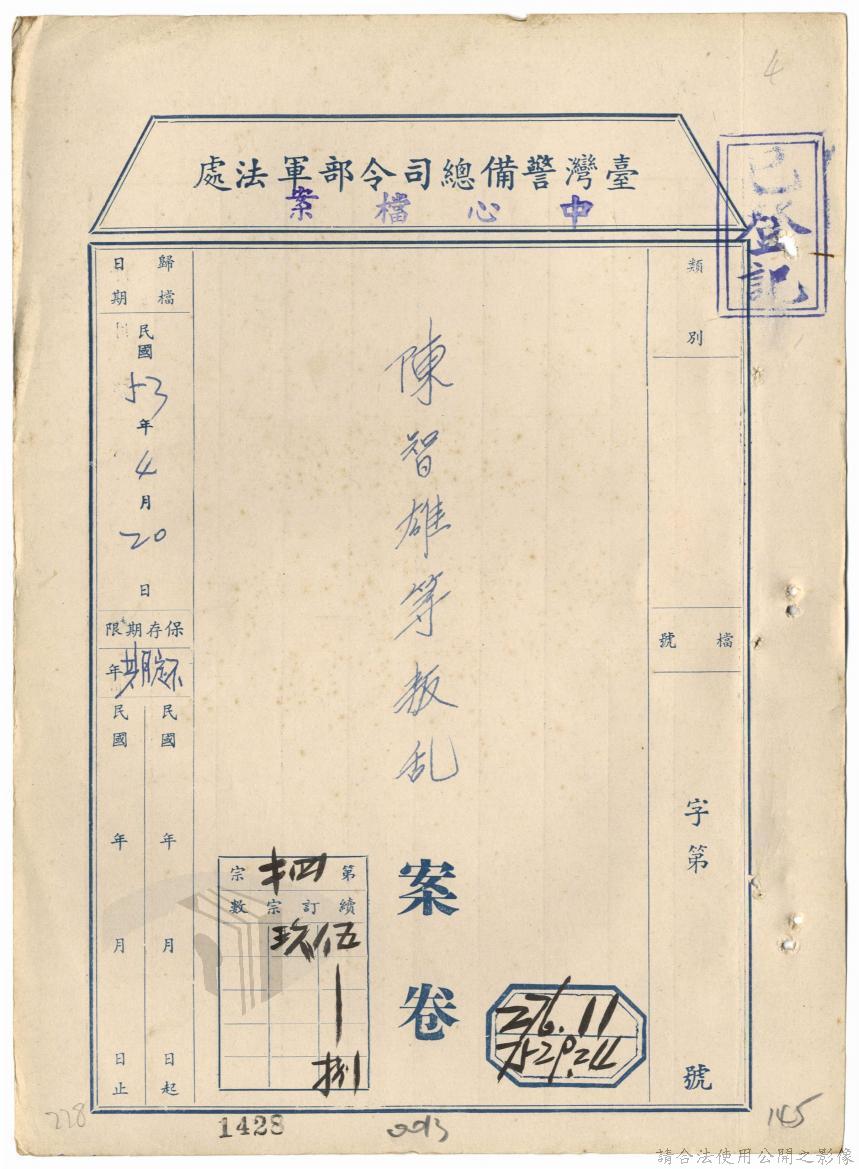 4
臺灣警備總司令部軍法處
中心檔案
已登記
類別
檔號
字第
號
陳智雄等叛乱
案卷
276.11
歸檔日期
民國
53
年
4
月
20
日
保存期限
年
民國 年 月 日起
民國 年 月 日止
第 宗
續訂宗數
228
1428
145
請合法使用公開之影像